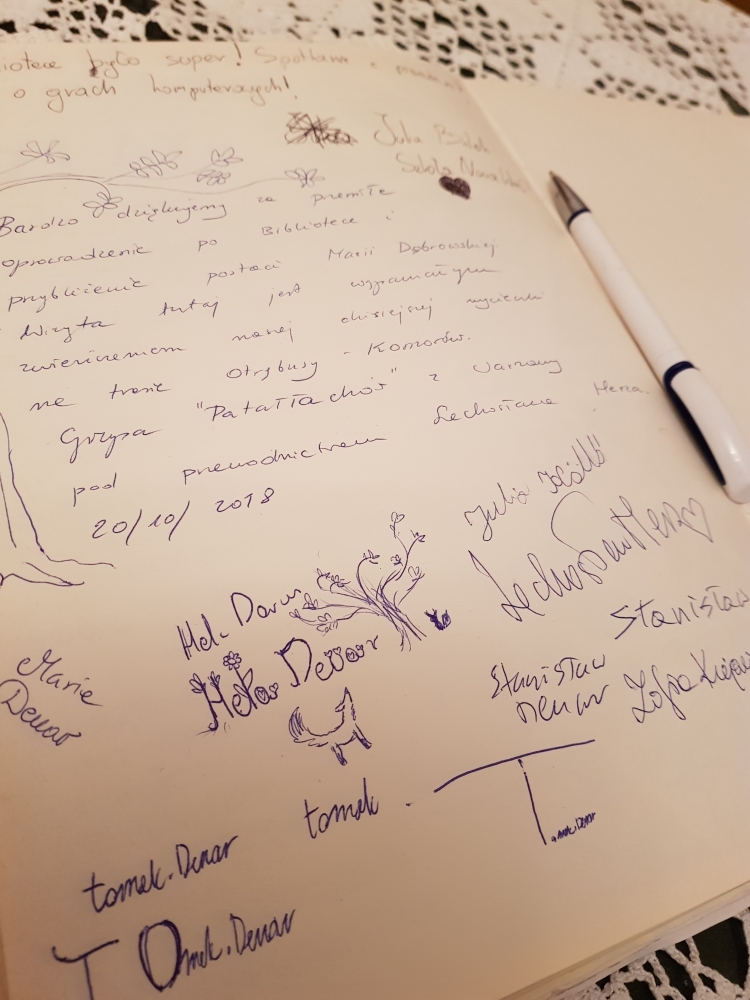 było super! Spotkanie z
o grach komputerowych!
Julia
Bardzo dziękujemy za przemiłe
oprowadzenie po Bibliotece i
przybliżenie postaci Marii Dąbrowskiej
Wizyta tutaj jest wspaniałym
zwieńczeniem naszej dzisiejszej wycieczki
na trasie Otrębusy - Komorów.
Grupa "Patałłachów" z Warszawy
pod przewodnictwem Lechosława Herza.
20/10/2018
Julia
Lechosław Herz
Hel. Denar
Stanisław
Marie
Denar
Hela Denar
Stanisław
Denar
Zofia
tomek.
T
omek.Denar
tomek.Denar
TOmek.Denar